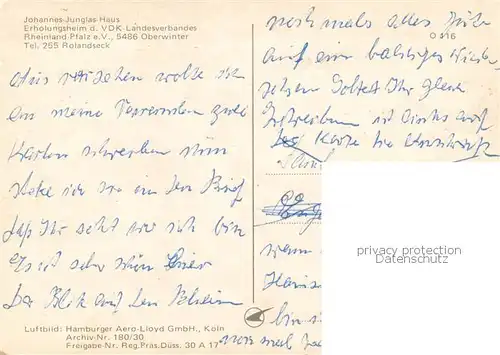 Johannes-Junglas Haus
Erholungsheim d. VDK Landesverbandes
Rheinland-Pfalz e.V., 5486 Oberwinter
Tel. 255 Rolandseck
Aus versehen wollte ich
an meine Verwandten zwei
Karten schreiben nun
stecke ich sie in den Brief
daß Ihr seht wo ich bin
Es ist sehr schön hier
Der Blick auf den Rhein
Luftbild: Hamburger Aero-Lloyd GmbH., Köln
Archiv-Nr. 180/30
Freigabe-Nr. Reg. Präs. Düss. 30 A 17
nochmals alles Gute
O 316
auf ein baldiges Wieder
sehen Ihr gleich
ist links auf
Karte die Anschrift
privacy protection
Datenschutz
wenn
bin